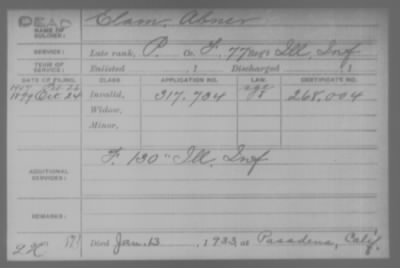 DEAD
NAME OF SOLDIER: Clam, Abner
SERVICE: Late rank, P. Co. F, 77 Reg't Ill. Inf
TERM OF SERVICE: Enlisted , 1 Discharged , 1
DATE OF FILING. CLASS. APPLICATION NO. LAW. CERTIFICATE NO.
1879 Oct 24 Invalid, 317.704 268.004
Widow,
Minor,
ADDITIONAL SERVICES: F. 130" Ill. Inf
REMARKS:
Died Jan. 13, 1933 at Pasadena, Calif.